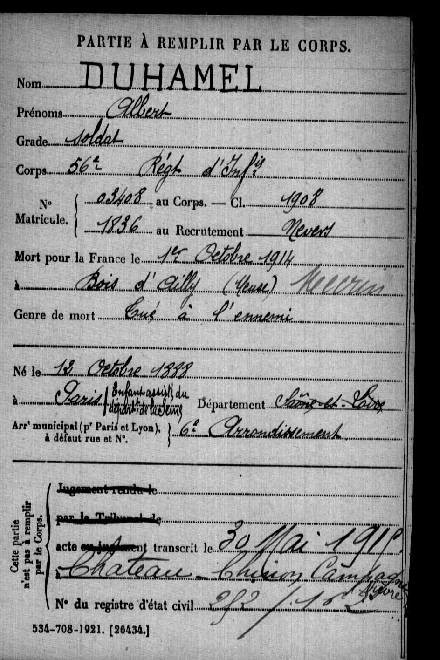 PARTIE À REMPLIR PAR LE CORPS.
Nom DUHAMEL
Prénoms Albert
Grade soldat
Corps 56e Régt d'Infie
N° Matricule. { 03408 au Corps. — Cl. 1908
1836 au Recrutement Nevers
Mort pour la France le 1er Octobre 1914
à Bois d'Ailly (Meuse)
Genre de mort Tué à l'ennemi
Né le 12 Octobre 1888
à Paris (Enfant assisté du départt de la Seine Département Saône-et-Loire
Arrt municipal (pr Paris et Lyon), à défaut rue et N°. } 6e Arrondissement
Cette partie n'est pas à remplir par le Corps.
Jugement rendu le
par le Tribunal de
acte ou jugement transcrit le 30 Mai 191
à Château-Chinon Campagne
Nièvre
N° du registre d'état civil 292 /
534-708-1921. [26434.]